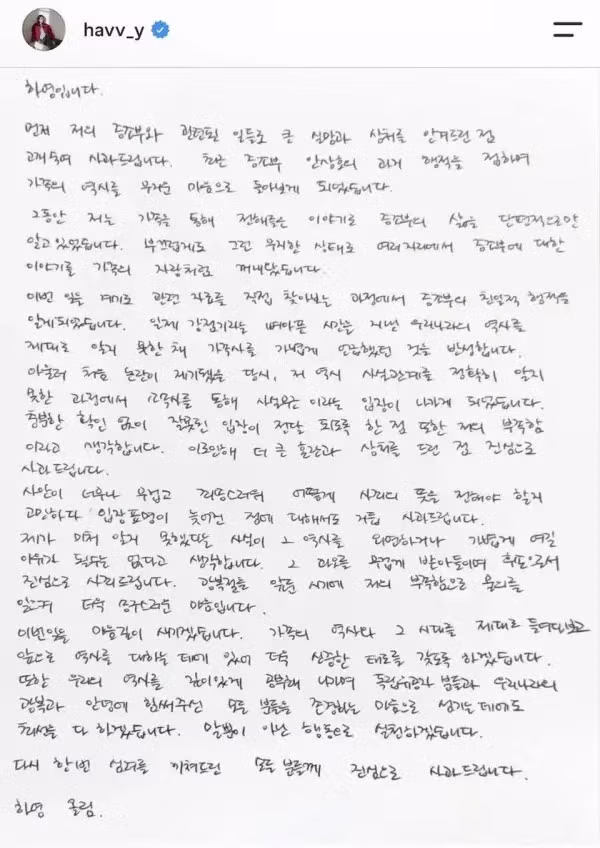 havv_y
하영입니다.
먼저 저의 증조부와 관련된 일들로 큰 실망과 상처를 안겨드린 점
고개숙여 사과드립니다. 최근 증조부 안상호의 과거 행적을 접하며
가족의 역사를 무거운 마음으로 돌아보게 되었습니다.
그동안 저는 가족을 통해 전해들은 이야기로 증조부의 삶을 단편적으로만
알고 있었습니다. 부끄럽게도 그런 무지한 상태로 여러자리에서 증조부에 대한
이야기를 가족의 자랑처럼 꺼내왔습니다.
이번 일을 계기로 관련 자료를 직접 찾아보는 과정에서 증조부의 친일적 행적을
알게되었습니다. 일제 강점기라는 뼈아픈 시간을 지나온 우리나라의 역사를
제대로 알지 못한 채 가족사를 가볍게 언급했던 것을 반성합니다.
아울러 처음 논란이 제기됐을 당시, 저 역시 사실관계를 정확히 알지
못한 과정에서 소속사를 통해 사실무근 이라는 입장이 나가게 되었습니다.
충분한 확인 없이 잘못된 입장이 전달 되도록 한 점 또한 저의 부족함
이라고 생각합니다. 이로인해 더 큰 혼란과 상처를 드린 점 진심으로
사과드립니다.
사안이 너무나 무겁고 조심스러워 어떻게 사죄의 뜻을 전해야 할지
고민하다 입장표명이 늦어진 점에 대해서도 거듭 사과드립니다.
제가 미처 알지 못했다는 사실이 그 역사를 외면하거나 가볍게 여길
이유가 될수는 없다고 생각합니다. 그 과오를 무겁게 받아들이며 후손으로서
진심으로 사죄드립니다. 광복절을 앞둔 시기에 저의 부족함으로 물의를
일으켜 더욱 죄스러운 마음입니다.
이번일을 마음깊이 새기겠습니다. 가족의 역사와 그 시대를 제대로 들여다보고
앞으로 역사를 대하는 데에 있어 더욱 신중한 태도를 갖도록 하겠습니다.
또한 우리의 역사를 깊이있게 공부해 나가며 독립유공자 분들과 우리나라의
광복과 안녕에 힘써주신 모든 분들을 존경하는 마음으로 섬기는데에도
최선을 다 하겠습니다. 말뿐이 아닌 행동으로 실천하겠습니다.
다시 한번 심려를 끼쳐드린 모든 분들께 진심으로 사과드립니다.
하영 올림.